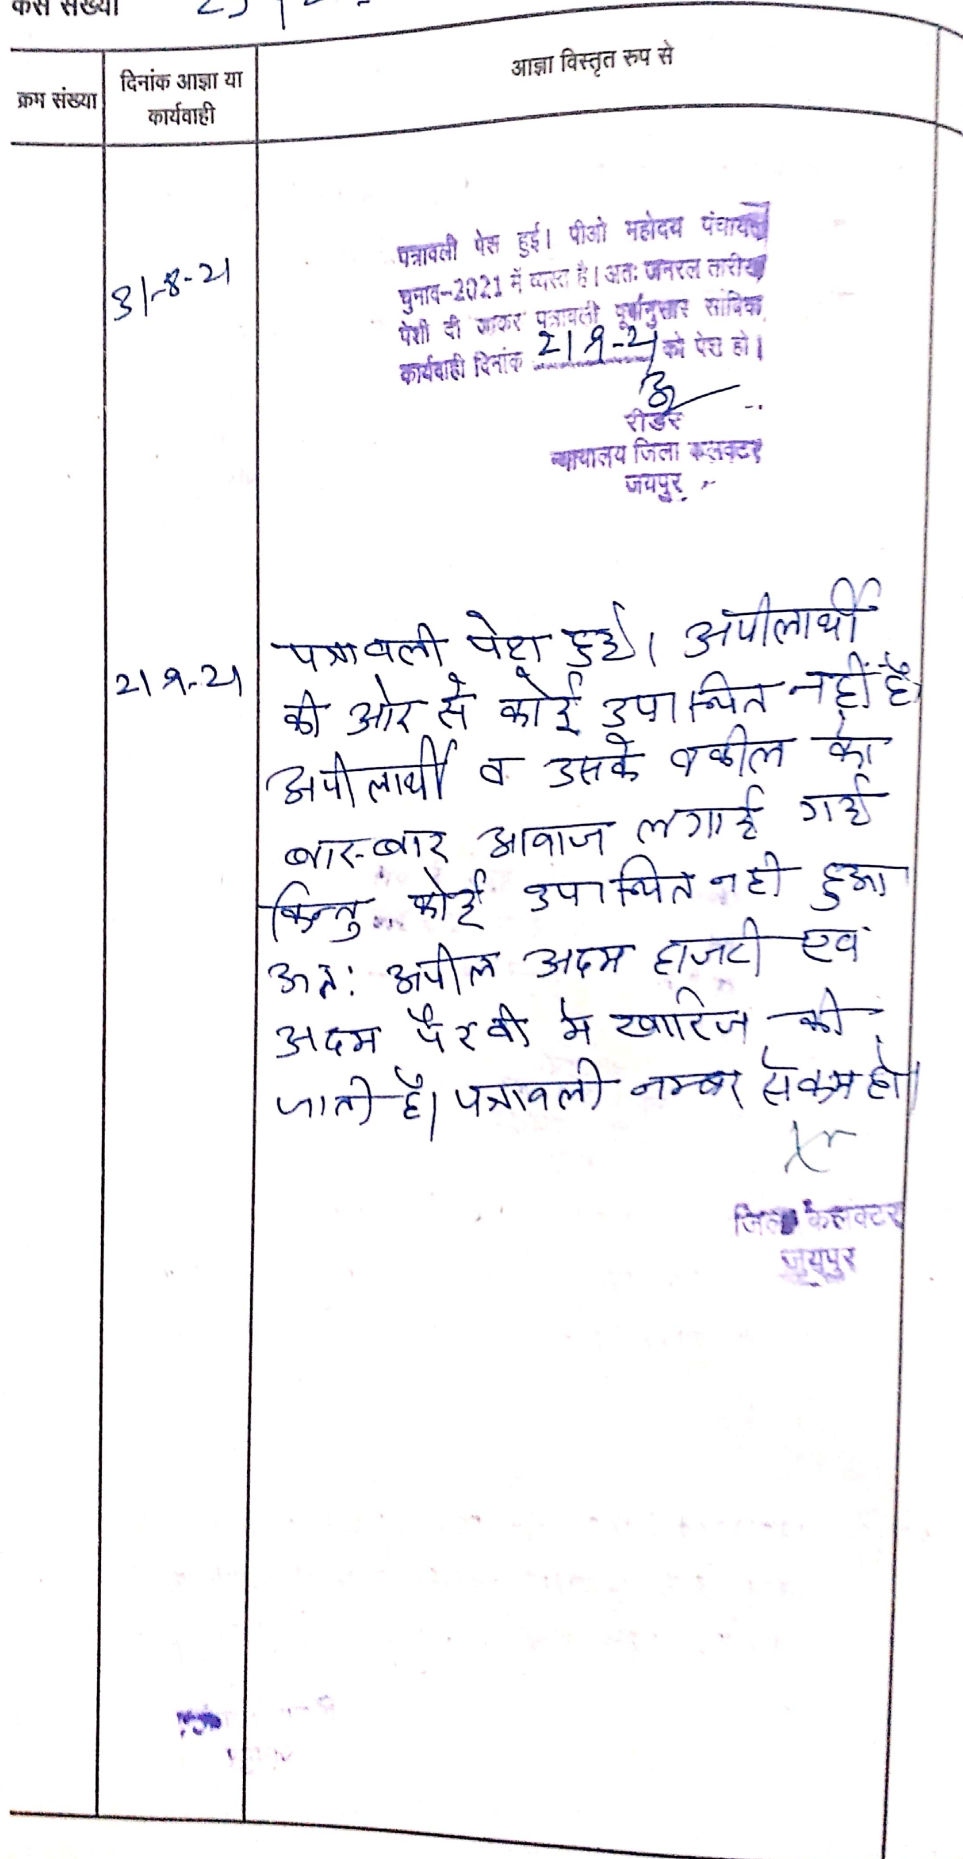 केस संख्या
क्रम संख्या
दिनांक आज्ञा या
कार्यवाही
आज्ञा विस्तृत रुप से
31-8-21
पत्रावली पेश हुई। पीओ महोदय पंचायत
चुनाव-2021 में व्यस्त है। अतः जनरल तारीख
पेशी दी जाकर पत्रावली पूर्वानुसार साविक
कार्यवाही दिनांक 21 9-21 को पेश हो।
रीडर
न्यायालय जिला कलक्टर
जयपुर
21 9-21
पत्रावली पेश हुई। अपीलार्थी
की ओर से कोई उपस्थित नहीं है
अपीलार्थी व उसके वकील को
बार-बार आवाज लगाई गई
किन्तु कोई उपस्थित नही हुआ
अतः अपील अदम हाजरी एवं
अदम पैरवी मे खारिज की
जाती है। पत्रावली नम्बर से कम हो।
जिला कलक्टर
जयपुर